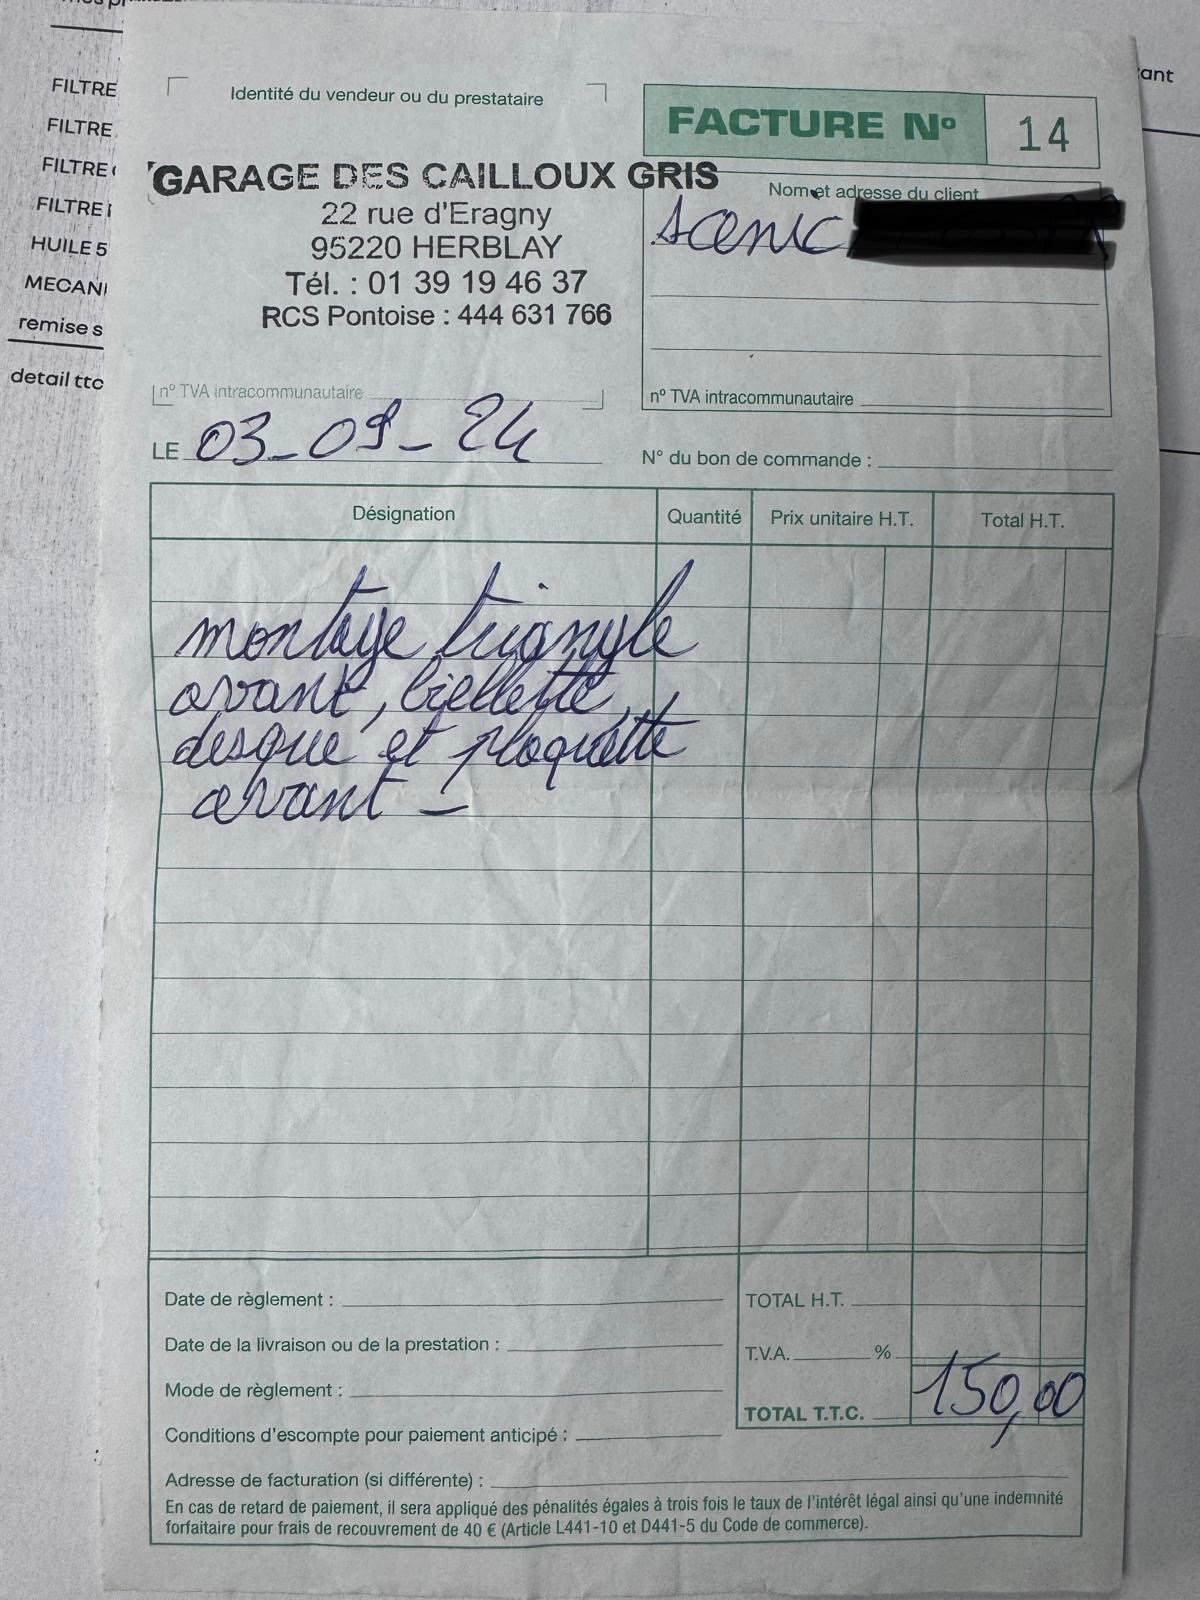 FILTRE
FILTRE
FILTRE
FILTRE
HUILE 5
MECANI
remise s
detail ttc
ant
Identité du vendeur ou du prestataire
FACTURE Nº 14
GARAGE DES CAILLOUX GRIS
22 rue d'Eragny
95220 HERBLAY
Tél. : 01 39 19 46 37
RCS Pontoise : 444 631 766
Nom et adresse du client
scenic
nº TVA intracommunautaire
nº TVA intracommunautaire
LE 03-09-24
N° du bon de commande :
Désignation Quantité Prix unitaire H.T. Total H.T.
montage triangle
avant, biellette,
desque et plaquette
avant -
Date de règlement :
Date de la livraison ou de la prestation :
Mode de règlement :
Conditions d'escompte pour paiement anticipé :
TOTAL H.T.
T.V.A. %
TOTAL T.T.C. 150,00
Adresse de facturation (si différente) :
En cas de retard de paiement, il sera appliqué des pénalités égales à trois fois le taux de l'intérêt légal ainsi qu'une indemnité
forfaitaire pour frais de recouvrement de 40 € (Article L441-10 et D441-5 du Code de commerce).